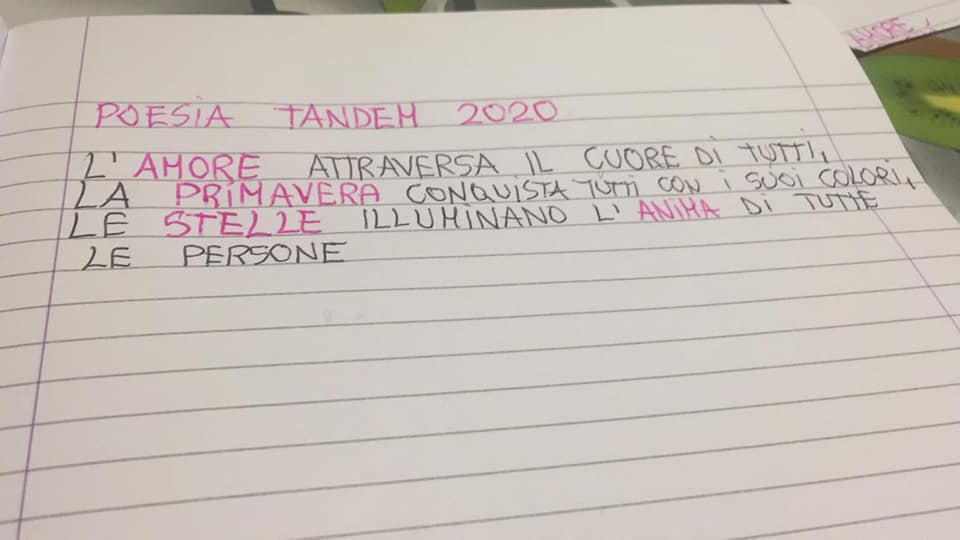 AMORE,
POESIA TANDEM 2020
L'AMORE ATTRAVERSA IL CUORE DI TUTTI,
LA PRIMAVERA CONQUISTA TUTTI CON I SUOI COLORI,
LE STELLE ILLUMINANO L'ANIMA DI TUTTE
LE PERSONE